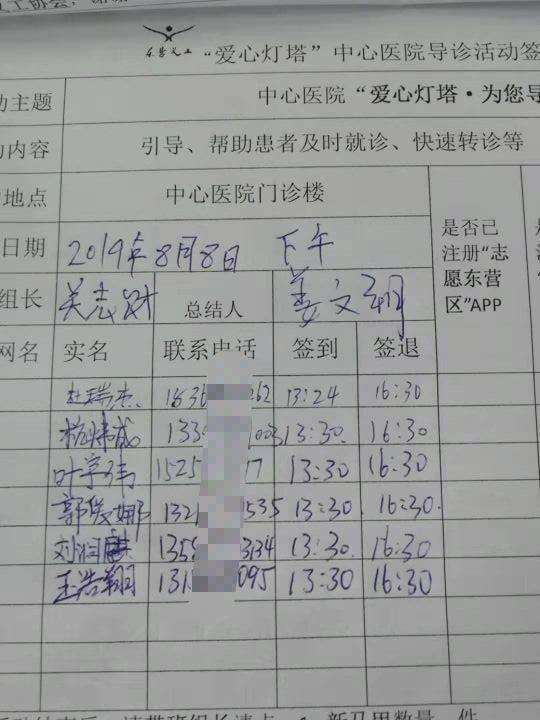 东营义工 “爱心灯塔”中心医院导诊活动签
动主题 中心医院“爱心灯塔·为您导
内容 引导、帮助患者及时就诊、快速转诊等
地点 中心医院门诊楼
日期 2019年8月8日 下午
是否已注册“志愿东营区”APP
组长 总结人 姜文翔
网名 实名 联系电话 签到 签退
杜瑞杰 1536 262 13:24 16:30
133 003 13:30 16:30
叶宇 1525 17 13:30 16:30
郭俊娜 132 535 13:30 16:30
刘润 135 3134 13:30 16:30
王浩翔 131 095 13:30 16:30